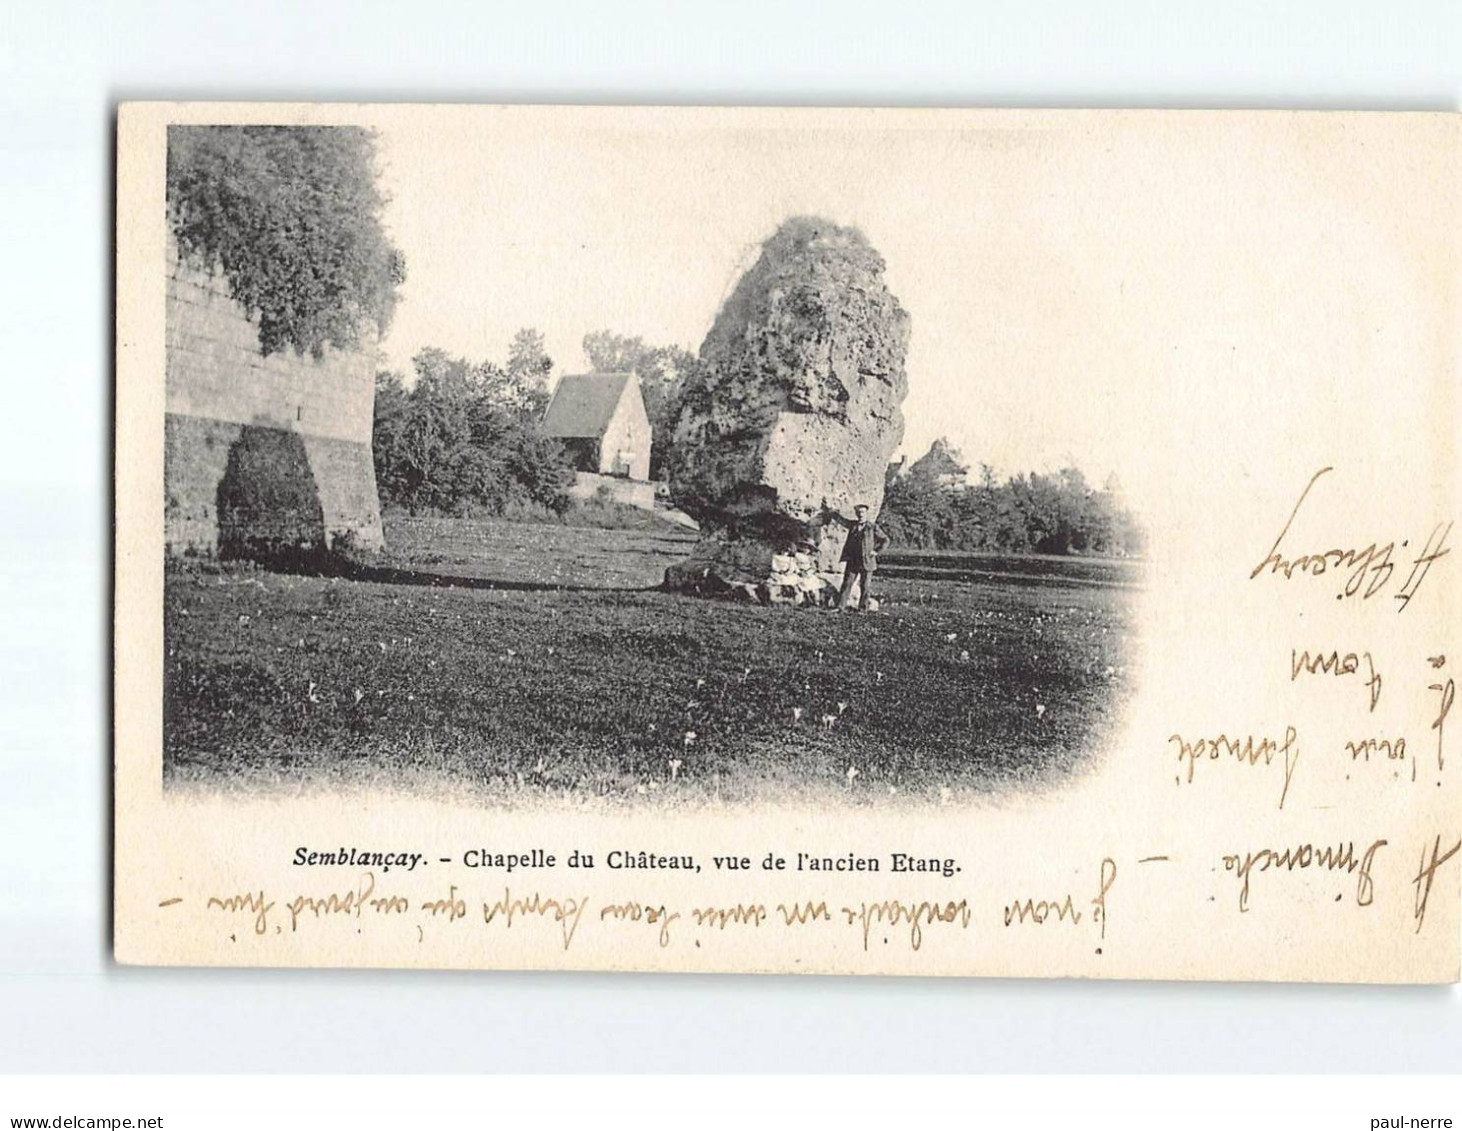 Semblançay. - Chapelle du Château, vue de l'ancien Etang.
A Dimanche - 
j vous souhaite un aussi beau temps qu aujourd'hui -
j'irai samedi
a tours
A. Thierry
delcampe.net
paul-nerre